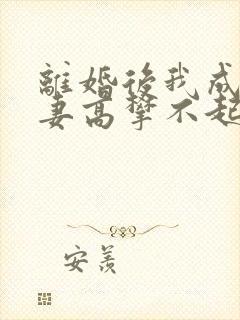 離婚後我成
妻高攀不起
安羨